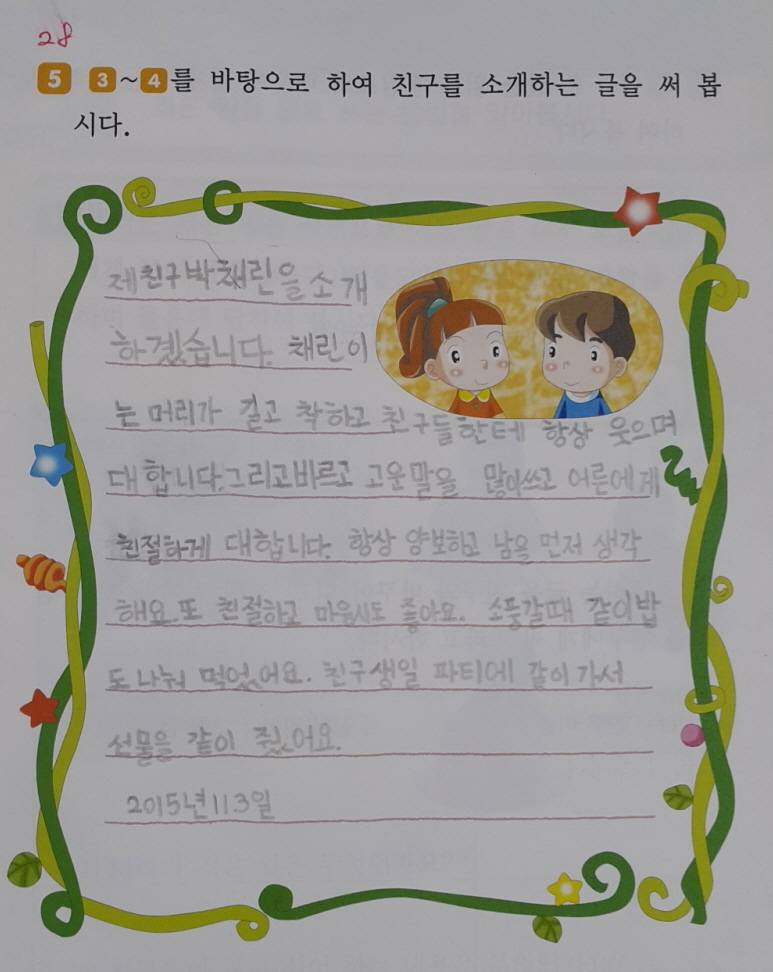 28
5 3~4를 바탕으로 하여 친구를 소개하는 글을 써 봅
시다.
제 친구 박채린을 소개
하겠습니다. 채린이
는 머리가 길고 착하고 친구들한테 항상 웃으며
대합니다.그리고바르고 고운말을 많이쓰고 어른에게
친절하게 대합니다. 항상 양보하고 남을 먼저 생각
해요.또 친절하고 마음씨도 좋아요. 소풍갈때 같이밥
도 나눠 먹었어요. 친구생일 파티에 같이 가서
선물을 같이 줬어요.
2015년11.3일